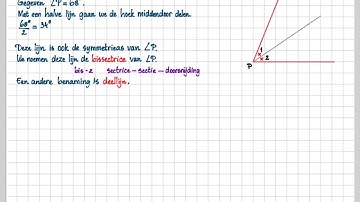 Gegeven ∠P = 68°.
Met een halve lijn gaan we de hoek middendoor delen.
68°/2 = 34°
Deze lijn is ook de symmetrieas van ∠P.
We noemen deze lijn de bissectrice van ∠P.
bis = 2 sectrice – sectie – doorsnijding
Een andere benaming is deellijn.
1
2
P